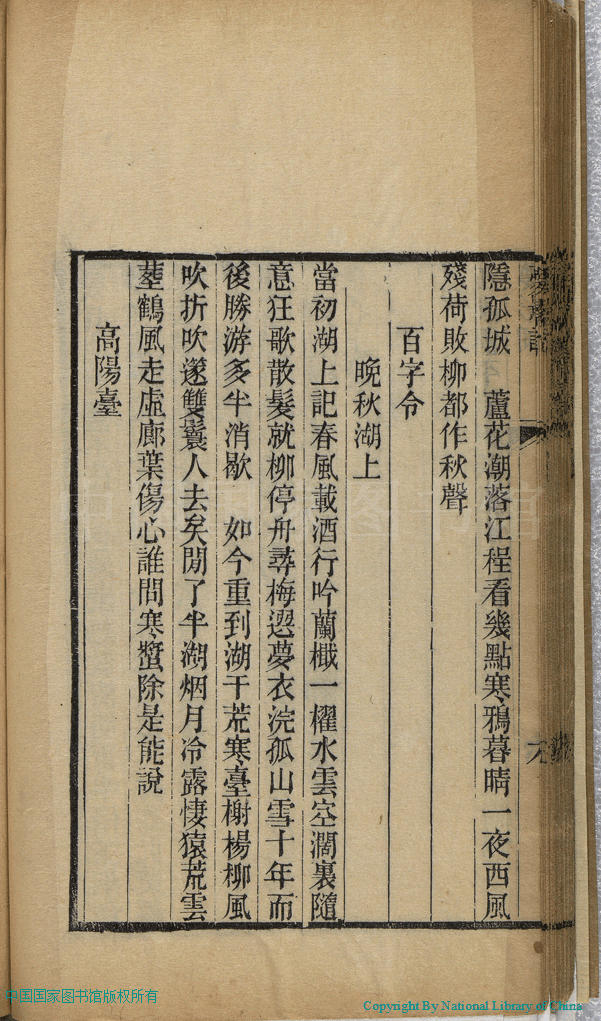 隱孤城　蘆花潮落江程看幾點寒鴉暮晴一夜西風
殘荷敗柳都作秋聲
百字令
晚秋湖上
當初湖上記春風載酒行吟蘭檝一櫂水雲空濶裏隨
意狂歌散髮就柳停舟尋梅選夢衣浣孤山雪十年而
後勝游多半消歇　如今重到湖干荒寒臺榭楊柳風
吹折吹邃雙鬟人去矣閒了半湖烟月冷露悽猿荒雲
塟鶴風走虛廊葉傷心誰問寒螿除是能說
高陽臺
中国国家图书馆版权所有
Copyright By National Library of China